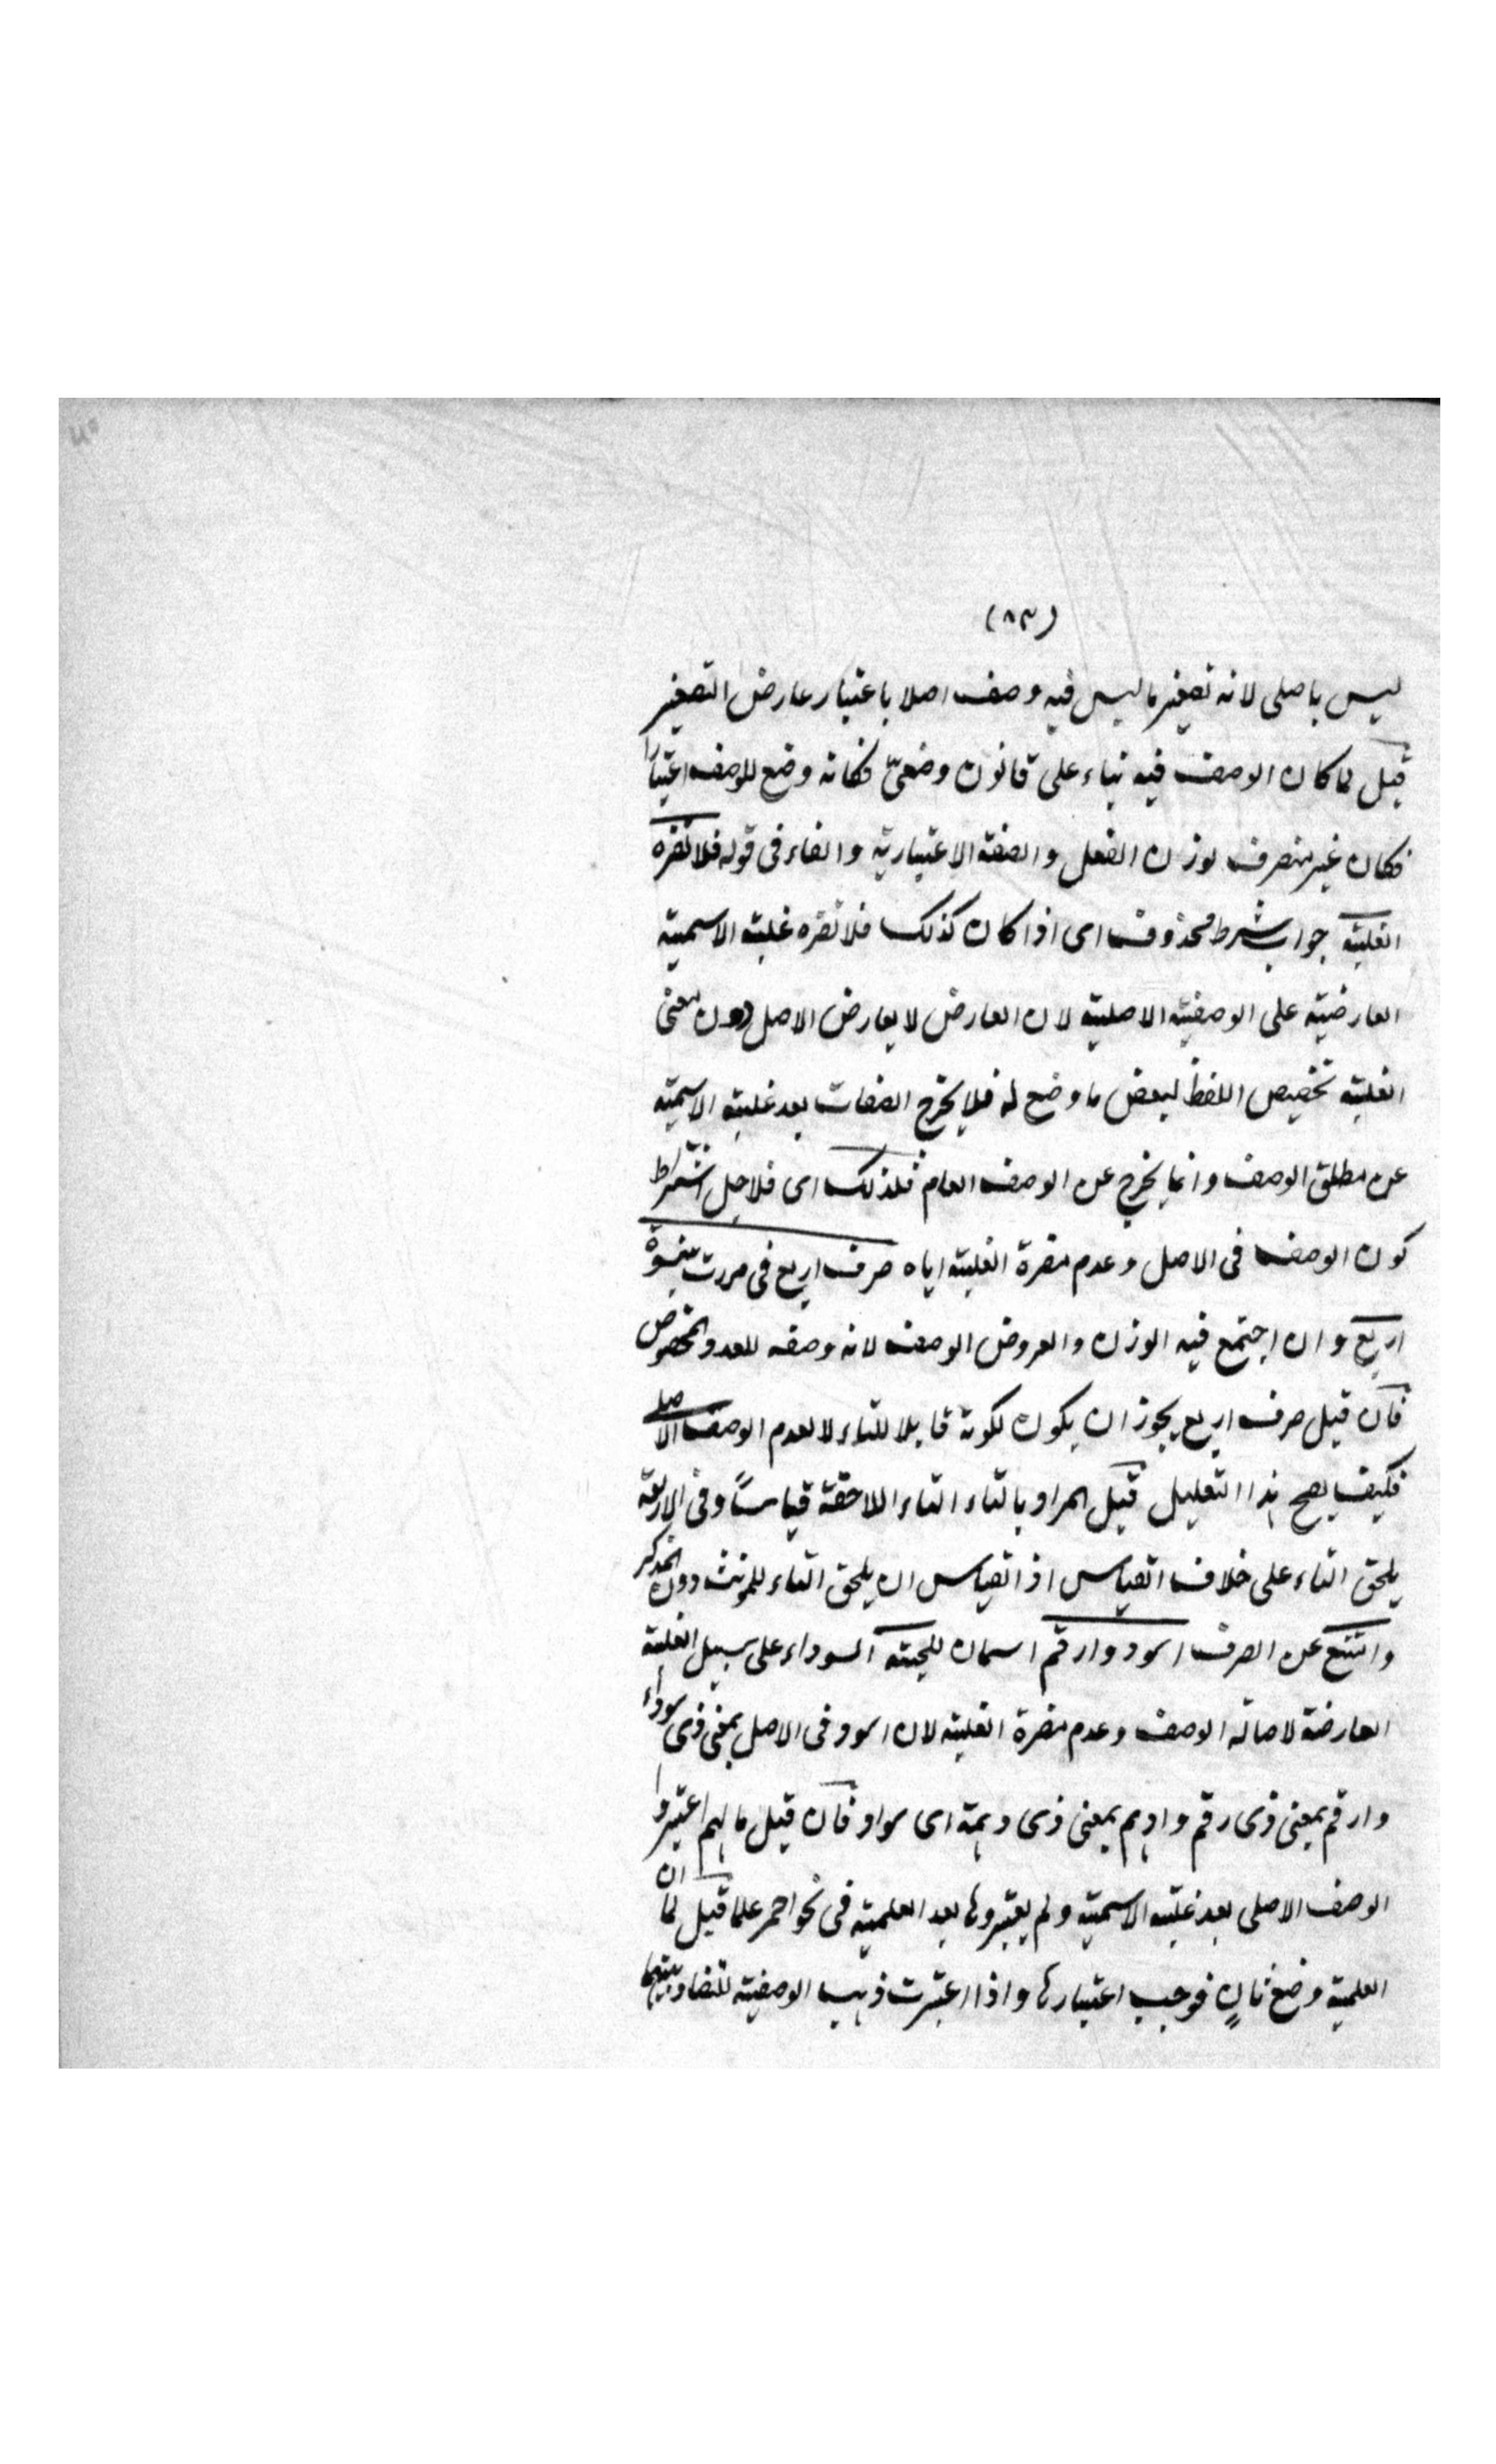 (٨٣)
ليس باصلى لانه تصغير ما ليس فيه وصف اصلا باعتبار عارض التصغير
قيل لما كان الوصف فيه بناء على قانون وضعىّ فكانه وضع للوصف اعتبارا
فكان غير منصرف لوزن الفعل والصفة الاعتبارية والفاء فى قوله فلا تضره
الغلبة جواب شرط محذوف اى اذا كان كذلك فلا تضره غلبة الاسمية
العارضية على الوصفية الاصلية لان العارض لا يعارض الاصل ولان معنى
الغلبة تخصيص اللفظ لبعض ما وضع له فلا يخرج الصفات بعد غلبة الاسمية
عن مطلق الوصف وانما يخرج عن الوصف العام فلذلك اى فلاجل اشتراط
كون الوصف فى الاصل وعدم مضرة الغلبة اياه صرف اربع فى مررت بنسوة
اربع وان اجتمع فيه الوزن والعروض الوصف لانه وصفه للعدد المخصوص
فان قيل صرف اربع يجوز ان يكون لكونه قابلا للتاء لا لعدم الوصف الاصلى
فكيف يصح هذا التعليل قيل المراد بالتاء التاء اللاحقة قياسًا وفى الاربعة
يلحق التاء على خلاف القياس اذ القياس ان يلحق التاء للمونث دون المذكر
وامتنع عن الصرف اسود وارقم اسمان للحية السوداء على سبيل الغلبة
العارضة لاصالة الوصف وعدم مضرة الغلبة لان اسود فى الاصل بمعنى ذى سواد
وارقم بمعنى ذى رقم وادهم بمعنى ذى دهمة اى سواد فان قيل ما لهم اعتبروا
الوصف الاصلى بعد غلبة الاسمية ولم يعتبروها بعد العلمية فى نحو احمر علما قيل لما ان
العلمية وضع ثانٍ فوجب اعتبارها واذا اعتبرت ذهب الوصفية للتضاد بينهما